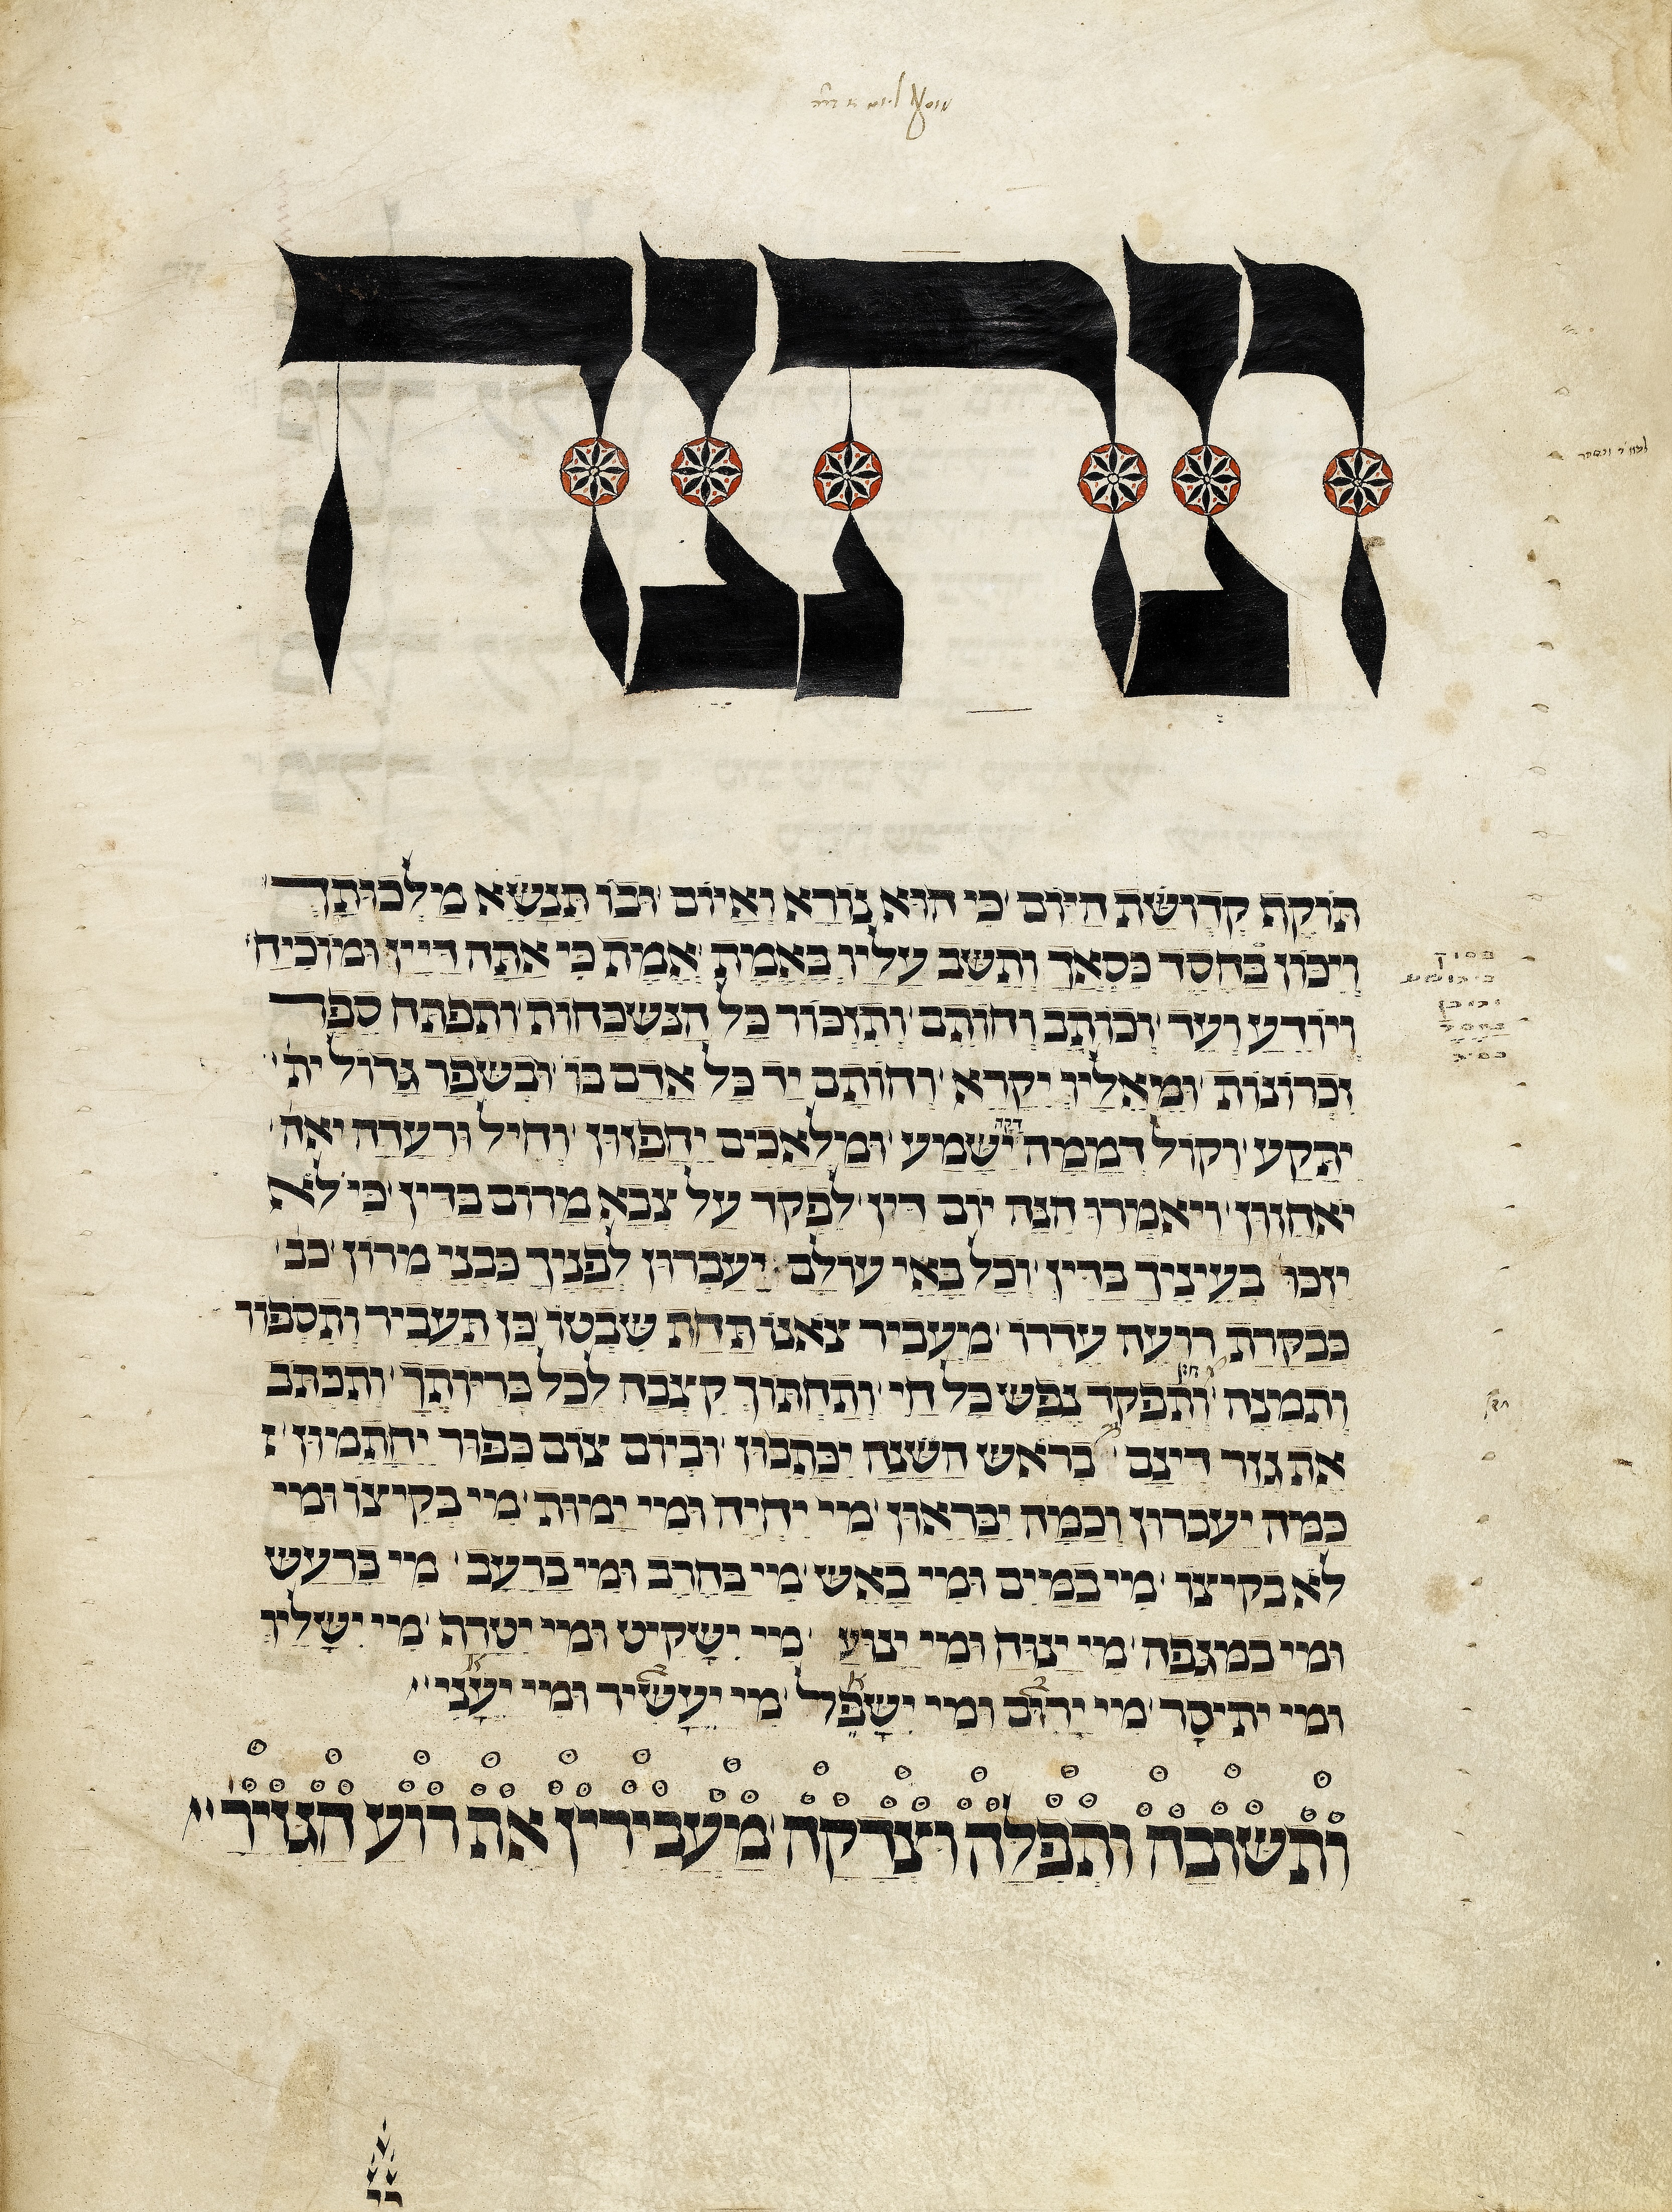 ונתנה
תוקף קדושת היום כי הוא נורא ואיום ובו תנשא מלכותך
ויכון בחסד כסאך ותשב עליו באמת אמת כי אתה דיין ומוכיח
ויודע ועד וכותב וחותם ותזכור כל הנשכחות ותפתח ספר
זכרונות ומאליו יקרא וחותם יד כל אדם בו ובשפר גדול ית
יתקע וקול דממה דקה ישמע ומלאכים יחפזון וחיל ורעדה יאח
יאחזון ויאמרו הנה יום דין לפקד על צבא מרום בדין כי לא
יזכו בעיניך בדין וכל באי עולם יעברון לפניך כבני מרון כב
כבקרת רועה עדרו מעביר צאנו תחת שבטו כן תעביר ותספור
ותמנה ותפקד נפש כל חי ותחתוך קצבה לכל בריותך ותכתב
את גזר דינם בראש השנה יכתבון וביום צום כפור יחתמון
כמה יעברון וכמה יבראון מי יחיה ומי ימות מי בקיצו ומי
לא בקיצו מי במים ומי באש מי בחרב ומי ברעב מי ברעש
ומי במגפה מי ינוח ומי ינוע מי ישקיט ומי יטרף מי ישליו
ומי יתיסר מי ירום ומי ישפל מי יעשיר ומי יעני
ותשובה ותפלה וצדקה מעבירין את רוע הגזיר